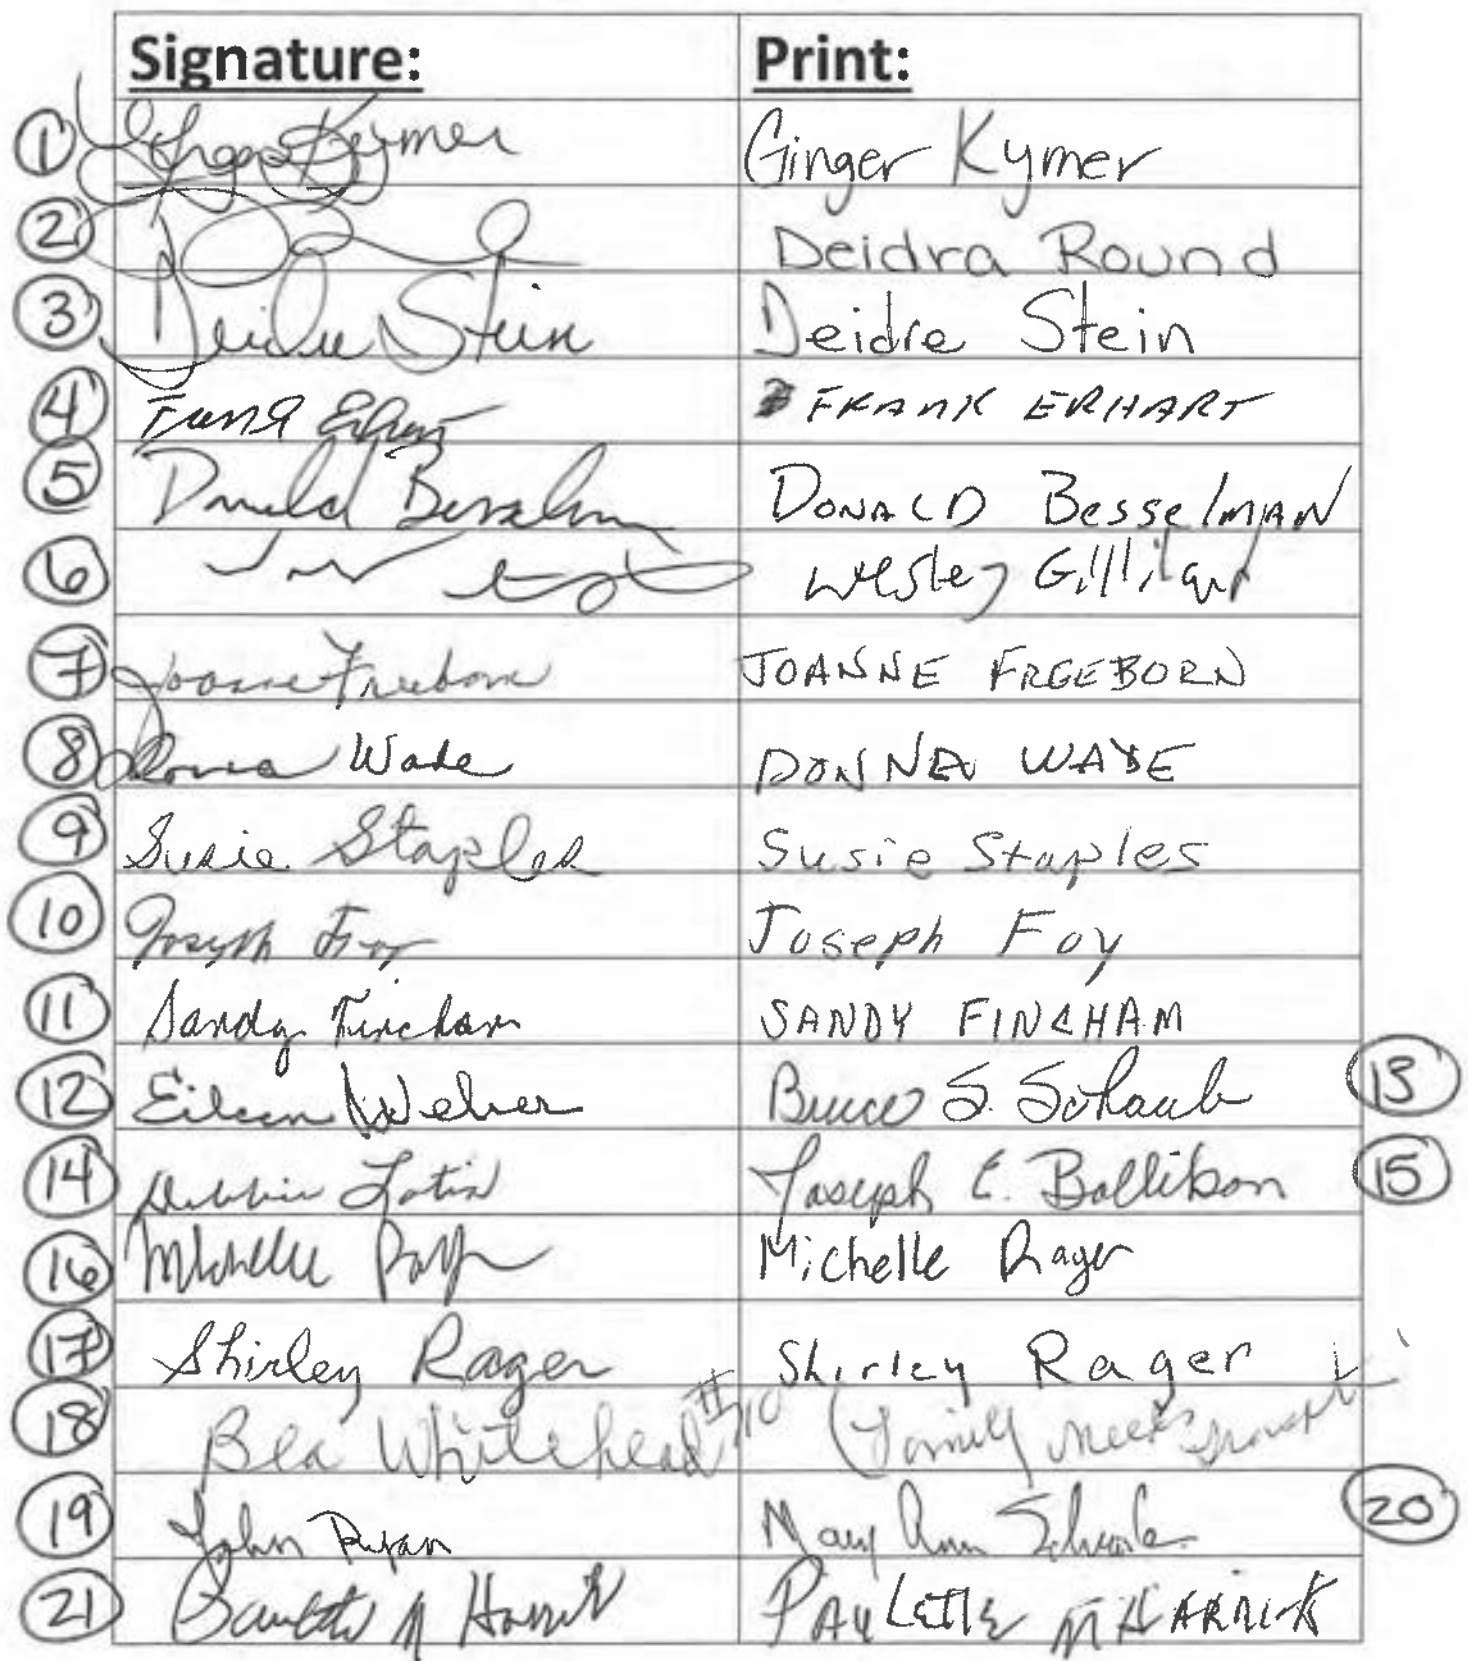 Signature: Print:
1 Ginger Kymer Ginger Kymer
2 Deidra Round
3 Deidre Stein Deidre Stein
4 Frank Erhart FRANK ERHART
5 Donald Besselman DONALD BesselMAN
6 Wesley Gilliland
7 Joanne Freeborn JOANNE FREEBORN
8 Donna Wade DONNA WADE
9 Susie Staples Susie Staples
10 Joseph Foy Joseph Foy
11 Sandy Fincham SANDY FINCHAM
12 Eileen Weber Bruce S. Schaub 13
14 Debbie Joseph E. 15
16 Michelle Rager Michelle Rager
17 Shirley Rager Shirley Rager
18 Bea Whitehead (Family
19 John Ryan Mary Ann 20
21 Paulette M PAULETTE M